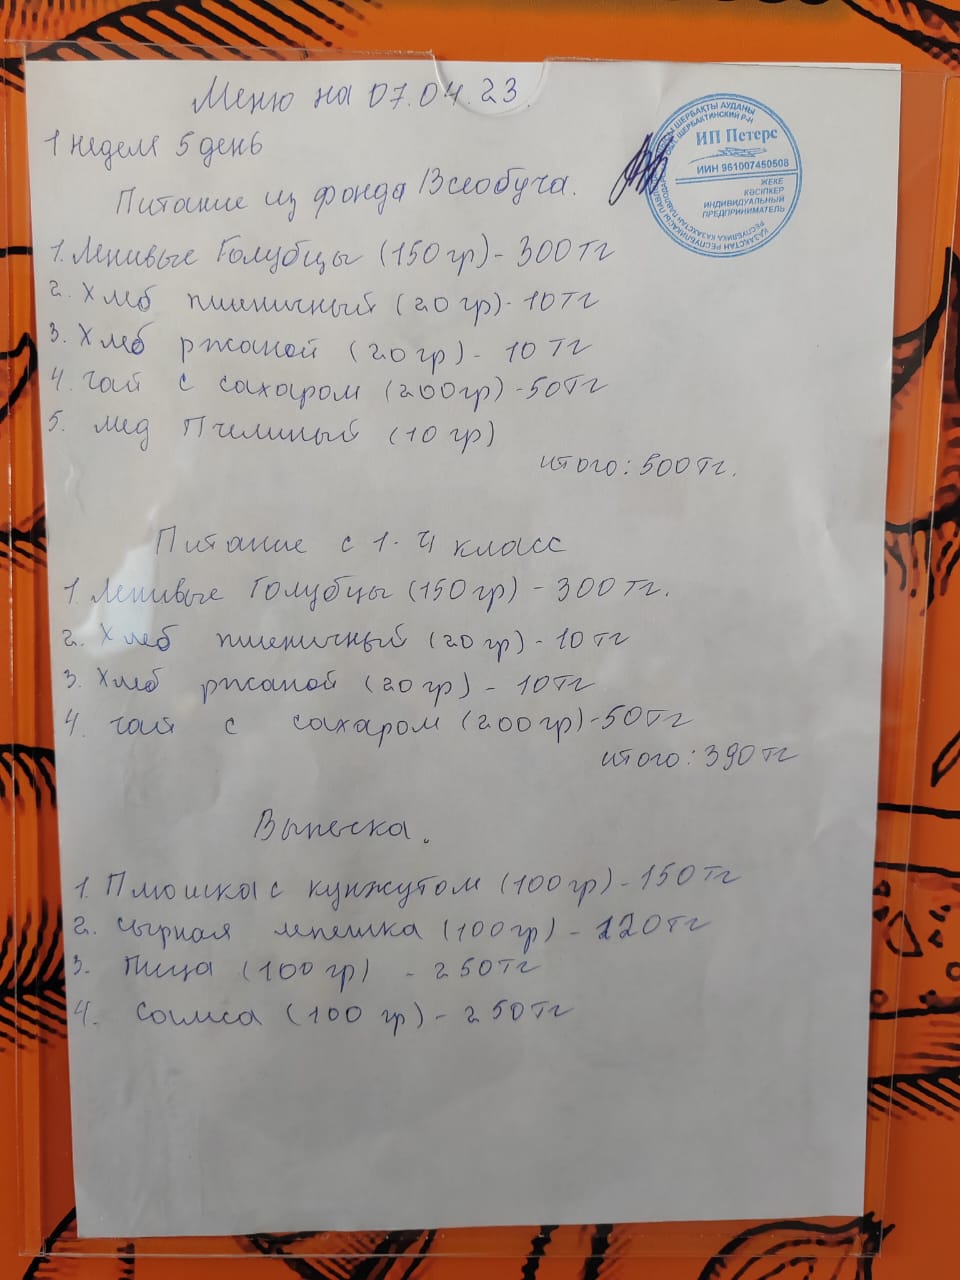 Меню на 07.04.23.
1 неделя 5 день
Питание из фонда Всеобуча.
1. Ленивые Голубцы (150 гр) - 300 тг
2. Хлеб пшеничный (20 гр) - 10 тг
3. Хлеб ржаной (20 гр) - 10 тг
4. чай с сахаром (200 гр) - 50 тг
5. мед Пчелиный (10 гр)
итого: 500 тг.
Питание с 1-4 класс
1. Ленивые Голубцы (150 гр) - 300 тг.
2. Хлеб пшеничный (20 гр) - 10 тг
3. Хлеб ржаной (20 гр) - 10 тг
4. чай с сахаром (200 гр) - 50 тг
итого: 390 тг
Выпечка.
1. Плюшка с кунжутом (100 гр) - 150 тг
2. Сырная лепешка (100 гр) - 120 тг
3. Пица (100 гр) - 250 тг
4. Самса (100 гр) - 250 тг
ИП Петерс
ИИН 961007450508
ЖЕКЕ
КӘСІПКЕР
ИНДИВИДУАЛЬНЫЙ
ПРЕДПРИНИМАТЕЛЬ